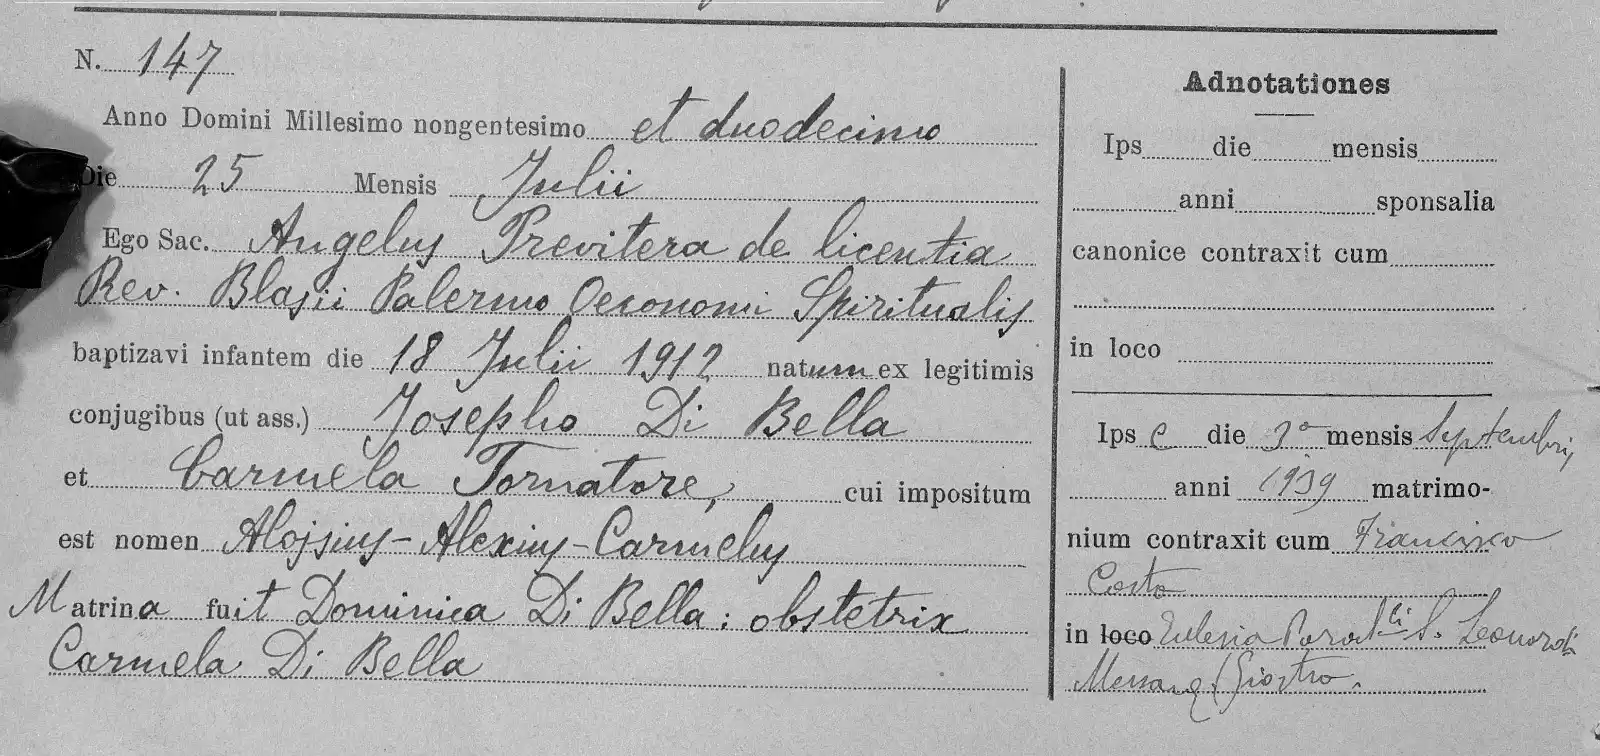 N. 147
Anno Domini Millesimo nongentesimo et duodecimo
Die 25 Mensis Julii
Ego Sac. Angelus Previtera de licentia
Rev. Blasii Palermo Oeconomi Spiritualis
baptizavi infantem die 18 Julii 1912 natum ex legitimis
conjugibus (ut ass.) Josepho Di Bella
et Carmela Tornatore, cui impositum
est nomen Alojsius-Alexius-Carmelus
Matrina fuit Dominica Di Bella: obstetrix
Carmela Di Bella
Adnotationes
Ips die mensis
anni sponsalia
canonice contraxit cum
in loco
Ips e die 3ª mensis Septembris
anni 1939 matrimo-
nium contraxit cum Francisco
Costa
in loco Eclesia Paroli S. Leonardi
Messanæ (Giostra.